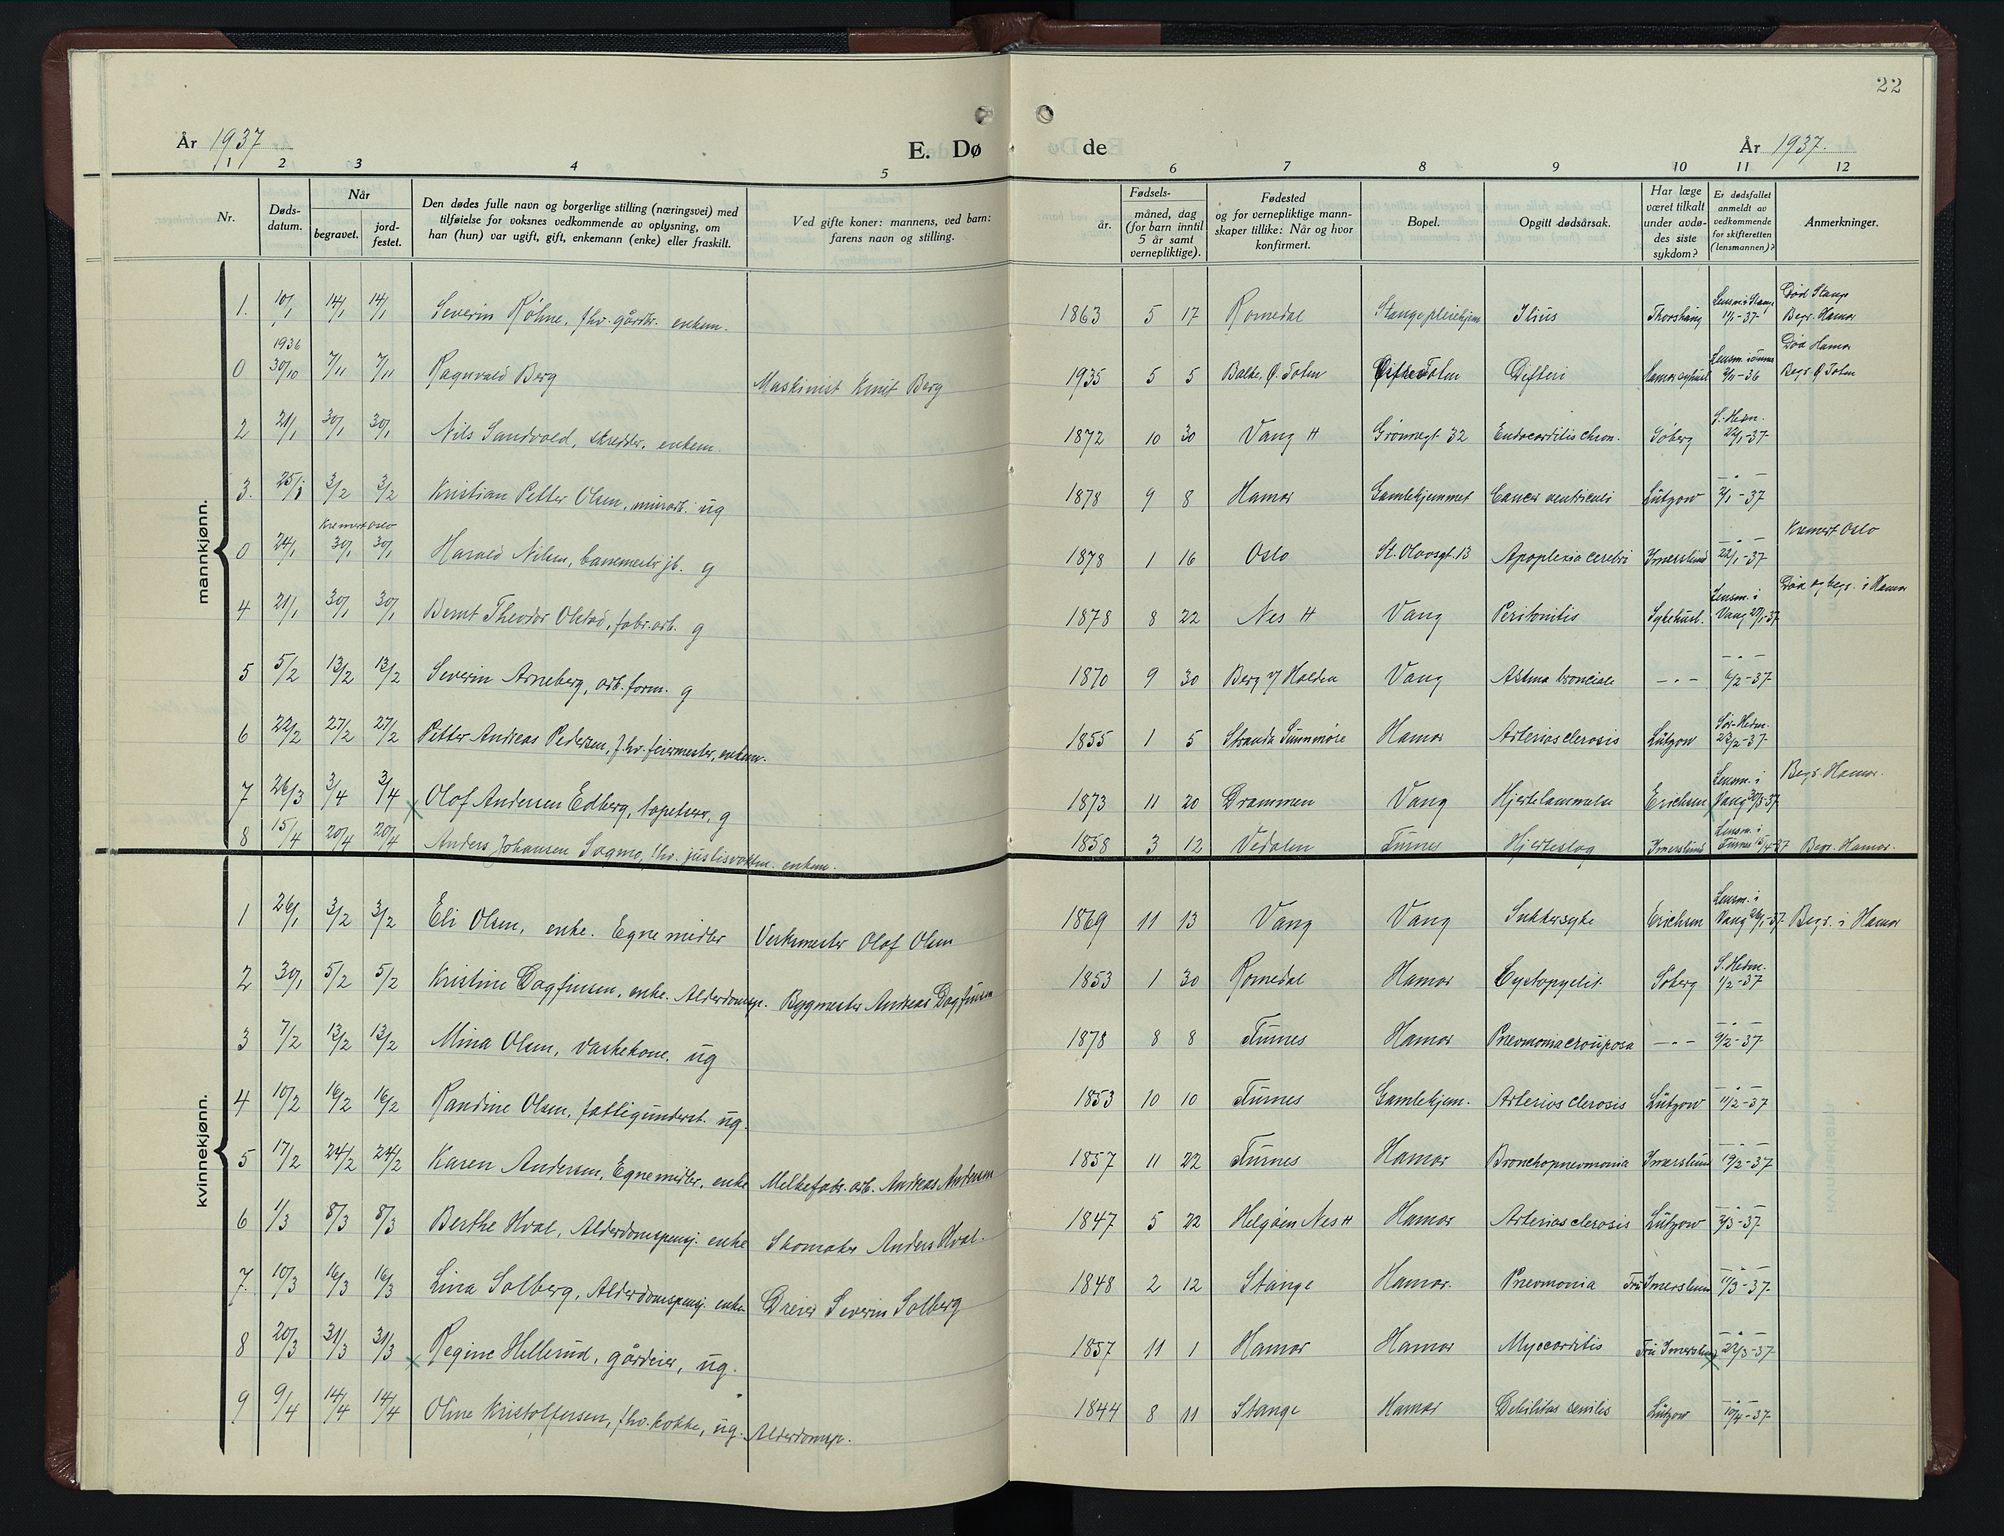 22
År 1937
E. Dø
de
År 1937.
1 2 3 4 5 6 7 8 9 10 11 12
Nr.
Døds-
datum.
Når
begravet.
jord-
festet.
Den dødes fulle navn og borgerlige stilling (næringsvei) med
tilføielse for voksnes vedkommende av oplysning, om
han (hun) var ugift, gift, enkemann (enke) eller fraskilt.
Ved gifte koner: mannens, ved barn:
farens navn og stilling.
Fødsels-
år.
måned, dag
(for barn inntil
5 år samt
vernepliktige).
Fødested
og for vernepliktige mann-
skaper tillike: Når og hvor
konfirmert.
Bopel.
Opgitt dødsårsak.
Har læge
været tilkalt
under avdø-
des siste
sykdom?
Er dødsfallet
anmeldt av
vedkommende
for skifteretten
(lensmannen)?
Anmerkninger.
mannkjønn.
1. 10/1 14/1 14/1 Severin Røhne, fhv. gårdbr. enkem. 1863 5 17 Romedal Stange pleiehjem Ilius Thorshaug Lensm i Stange 11/1-37 Død Stange Begr. Hamar
0 1936 30/10 7/11 7/11 Ragnvald Berg Maskinist Knut Berg 1935 5 5 Balke, Ø. Toten Østre Toten Difteri Hamar sykehus 2/11-36 Død Hamar Begr. Ø Toten
2 21/1 30/1 30/1 Nils Sandvold, skredder, enkem. 1872 10 30 Vang H Grønnegt 32 Endocarditis chron. Søberg S. Hedm. 22/1-37
3. 25/1 3/2 3/2 Kristian Petter Olsen, murarb. ug 1878 9 8 Hamar Gamlehjemmet Cancer ventriculi Lützow 2/1-37
Kremert Oslo
0 24/1 30/1 30/1 Harald Nilsen, banemester jb. g 1878 1 16 Oslo St. Olavsgt. 13 Apoplexia cerebri Imerslund 22/1-37 Kremert Oslo
4 21/1 30/1 30/1 Bernt Theodor Olstad, fabr.arb. g 1878 8 22 Nes H Vang Peritonitis Sykehusl. Lensm. i Vang 27/1-37 Død og begr. i Hamar
5 5/2 13/2 13/2 Severin Arneberg, arb. form. g 1870 9 30 Berg v/ Halden Vang Astma bronciale — " — 6/2-37
6 22/2 27/2 27/2 Petter Andreas Pedersen, fhv. feiermester, enkem. 1855 1 5 Stranda Sunnmøre Hamar Arteriosclerosis Lützow Sør-Hedm. 23/2-37
7 26/3 3/4 3/4 Olof Andersen Edberg, tapetserer, g 1873 11 20 Drammen Vang Hjertelammelse Erichsen Lensm. i Vang 30/3-37 Begr. Hamar.
8 15/4 20/4 20/4 Anders Johansen Sagmo, fhv. justisvaktm. enkem. 1858 3 12 Vedalen Furnes Hjerteslag Imerslund Lensm. i Furnes 15/4-37 Begr. Hamar.
kvinnekjønn.
1 26/1 3/2 3/2 Eli Olsen, enke. Egne midler Verksmester Olof Olsen 1869 11 13 Vang Vang Sukkersyke Erichsen Lensm. i Vang 26/1-37 Begr. i Hamar
2 30/1 5/2 5/2 Kristine Dagfinsen, enke. Alderdomsp. Byggmester Andreas Dagfinsen 1853 1 30 Romedal Hamar Cystopyelit. Søberg S. Hedm. 1/2-37
3 7/2 13/2 13/2 Mina Olsen, vaskekone, ug 1878 8 8 Furnes Hamar Pnevmonia crouposa — " — 9/2-37
4 10/2 16/2 16/2 Randine Olsen, fattigunderst. ug. 1853 10 10 Furnes Gamlehjem. Arteriosclerosis Lützow 11/2-37
5 17/2 24/2 24/2 Karen Andersen, Egne midler, enke Melkefabr. arb. Andreas Andersen 1857 11 22 Furnes Hamar Bronchopnevmonia Imerslund 19/2-37
6 1/3 8/3 8/3 Berthe Hval, Alderdomspensj. enke Skomaker Anders Hval. 1847 5 22 Helgøen Nes H Hamar Arteriosclerosis Lützow 2/3-37
7. 10/3 16/3 16/3 Lina Solberg, Alderdomspensj. enke Dreier Severin Solberg 1848 2 12 Stange Hamar. Pnevmonia Fru Imerslund 11/3-37
8 20/3 31/3 31/3 Regine Hellerud, gårdeier, ug. 1857 11 1 Hamar Hamar Myocarditis Fru Imerslund 22/3-37
9 9/4 14/4 14/4 Oline Kristoffersen, fhv. kokke, ug. Alderdomsp. 1844 8 11 Stange Hamar Debilitas senilis Lützow 10/4-37